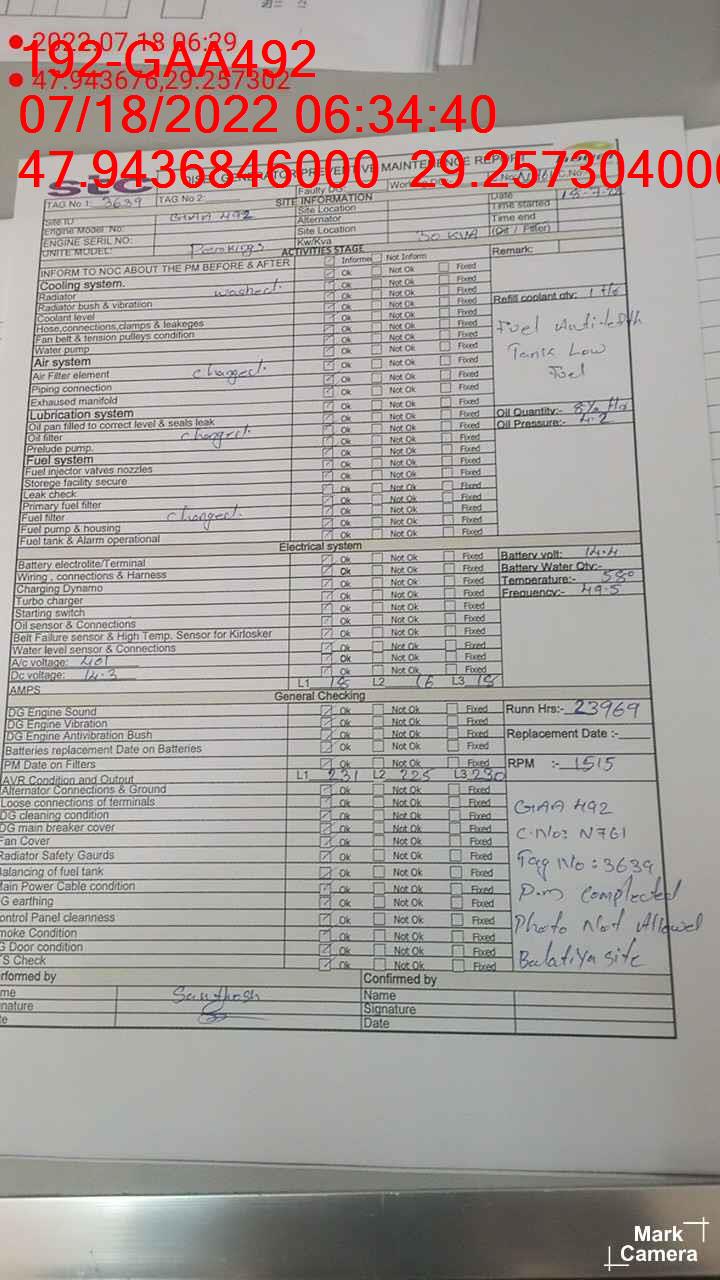 2022.07.18 06:29
192-GAA492
47.943676,29.257302
07/18/2022 06:34:40
47.9436846000 29.257304000
stc
DIESEL GENERATOR PREVENTIVE MAINTENENCE REPORT
TAG No 1: 3639 TAG No 2: Faulty DG:
SITE INFORMATION Date 18-7-22
Site ID GAA 492 Site Location Time started
Engine Model No: Alternator Time end
ENGINE SERIL NO: Site Location (Oil / Filter)
UNITE MODEL: Perkings Kw/Kva 30 KVA
ACTIVITIES STAGE Remark:
INFORM TO NOC ABOUT THE PM BEFORE & AFTER Informed Not Inform
Cooling system. Ok Not Ok Fixed
Radiator washed. Ok Not Ok Fixed
Radiator bush & vibration Ok Not Ok Fixed Refill coolant qty:
Coolant level Ok Not Ok Fixed
Hose,connections,clamps & leakeges Ok Not Ok Fixed
Fan belt & tension pulleys condition Ok Not Ok Fixed
Water pump Ok Not Ok Fixed
Fuel
Tank Low
Fuel
Air system Ok Not Ok Fixed
Air Filter element changed. Ok Not Ok Fixed
Piping connection Ok Not Ok Fixed
Exhaused manifold Ok Not Ok Fixed
Lubrication system Ok Not Ok Fixed Oil Quantity:-
Oil pan filled to correct level & seals leak Ok Not Ok Fixed Oil Pressure:- 4.2
Oil filter changed. Ok Not Ok Fixed
Prelude pump. Ok Not Ok Fixed
Fuel system Ok Not Ok Fixed
Fuel injector valves nozzles Ok Not Ok Fixed
Storege facility secure Ok Not Ok Fixed
Leak check Ok Not Ok Fixed
Primary fuel filter Ok Not Ok Fixed
Fuel filter changed. Ok Not Ok Fixed
Fuel pump & housing Ok Not Ok Fixed
Fuel tank & Alarm operational Ok Not Ok Fixed
Electrical system
Battery electrolite/Terminal Ok Not Ok Fixed Battery volt: 14.4
Wiring , connections & Harness Ok Not Ok Fixed Battery Water Qty:-
Charging Dynamo Ok Not Ok Fixed Temperature:- 58°
Turbo charger Ok Not Ok Fixed Frequency:- 49.5
Starting switch Ok Not Ok Fixed
Oil sensor & Connections Ok Not Ok Fixed
Belt Failure sensor & High Temp. Sensor for Kirlosker Ok Not Ok Fixed
Water level sensor & Connections Ok Not Ok Fixed
A/c voltage: 401 Ok Not Ok Fixed
Dc voltage: 14.3 Ok Not Ok Fixed
AMPS L1 18 L2 16 L3 18
General Checking
DG Engine Sound Ok Not Ok Fixed Runn Hrs:- 23969
DG Engine Vibration Ok Not Ok Fixed
DG Engine Antivibration Bush Ok Not Ok Fixed Replacement Date :-
Batteries replacement Date on Batteries Ok Not Ok Fixed
PM Date on Filters Ok Not Ok Fixed RPM :- 1515
AVR Condition and Output L1 231 L2 225 L3 230
Alternator Connections & Ground Ok Not Ok Fixed
Loose connections of terminals Ok Not Ok Fixed
DG cleaning condition Ok Not Ok Fixed
DG main breaker cover Ok Not Ok Fixed
Fan Cover Ok Not Ok Fixed
Radiator Safety Gaurds Ok Not Ok Fixed
alancing of fuel tank Ok Not Ok Fixed
ain Power Cable condition Ok Not Ok Fixed
G earthing Ok Not Ok Fixed
ontrol Panel cleanness Ok Not Ok Fixed
moke Condition Ok Not Ok Fixed
G Door condition Ok Not Ok Fixed
S Check Ok Not Ok Fixed
GAA 492
C.No: N761
Tag No : 3639
P.m complected
Photo Not Allowed
Balatiya site
rformed by Confirmed by
me Santhosh Name
nature Signature
te Date
Mark
Camera